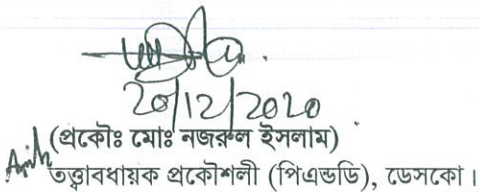 20/12/2020
(প্রকৌঃ মোঃ নজরুল ইসলাম)
তত্ত্বাবধায়ক প্রকৌশলী (পিএন্ডডি), ডেসকো।